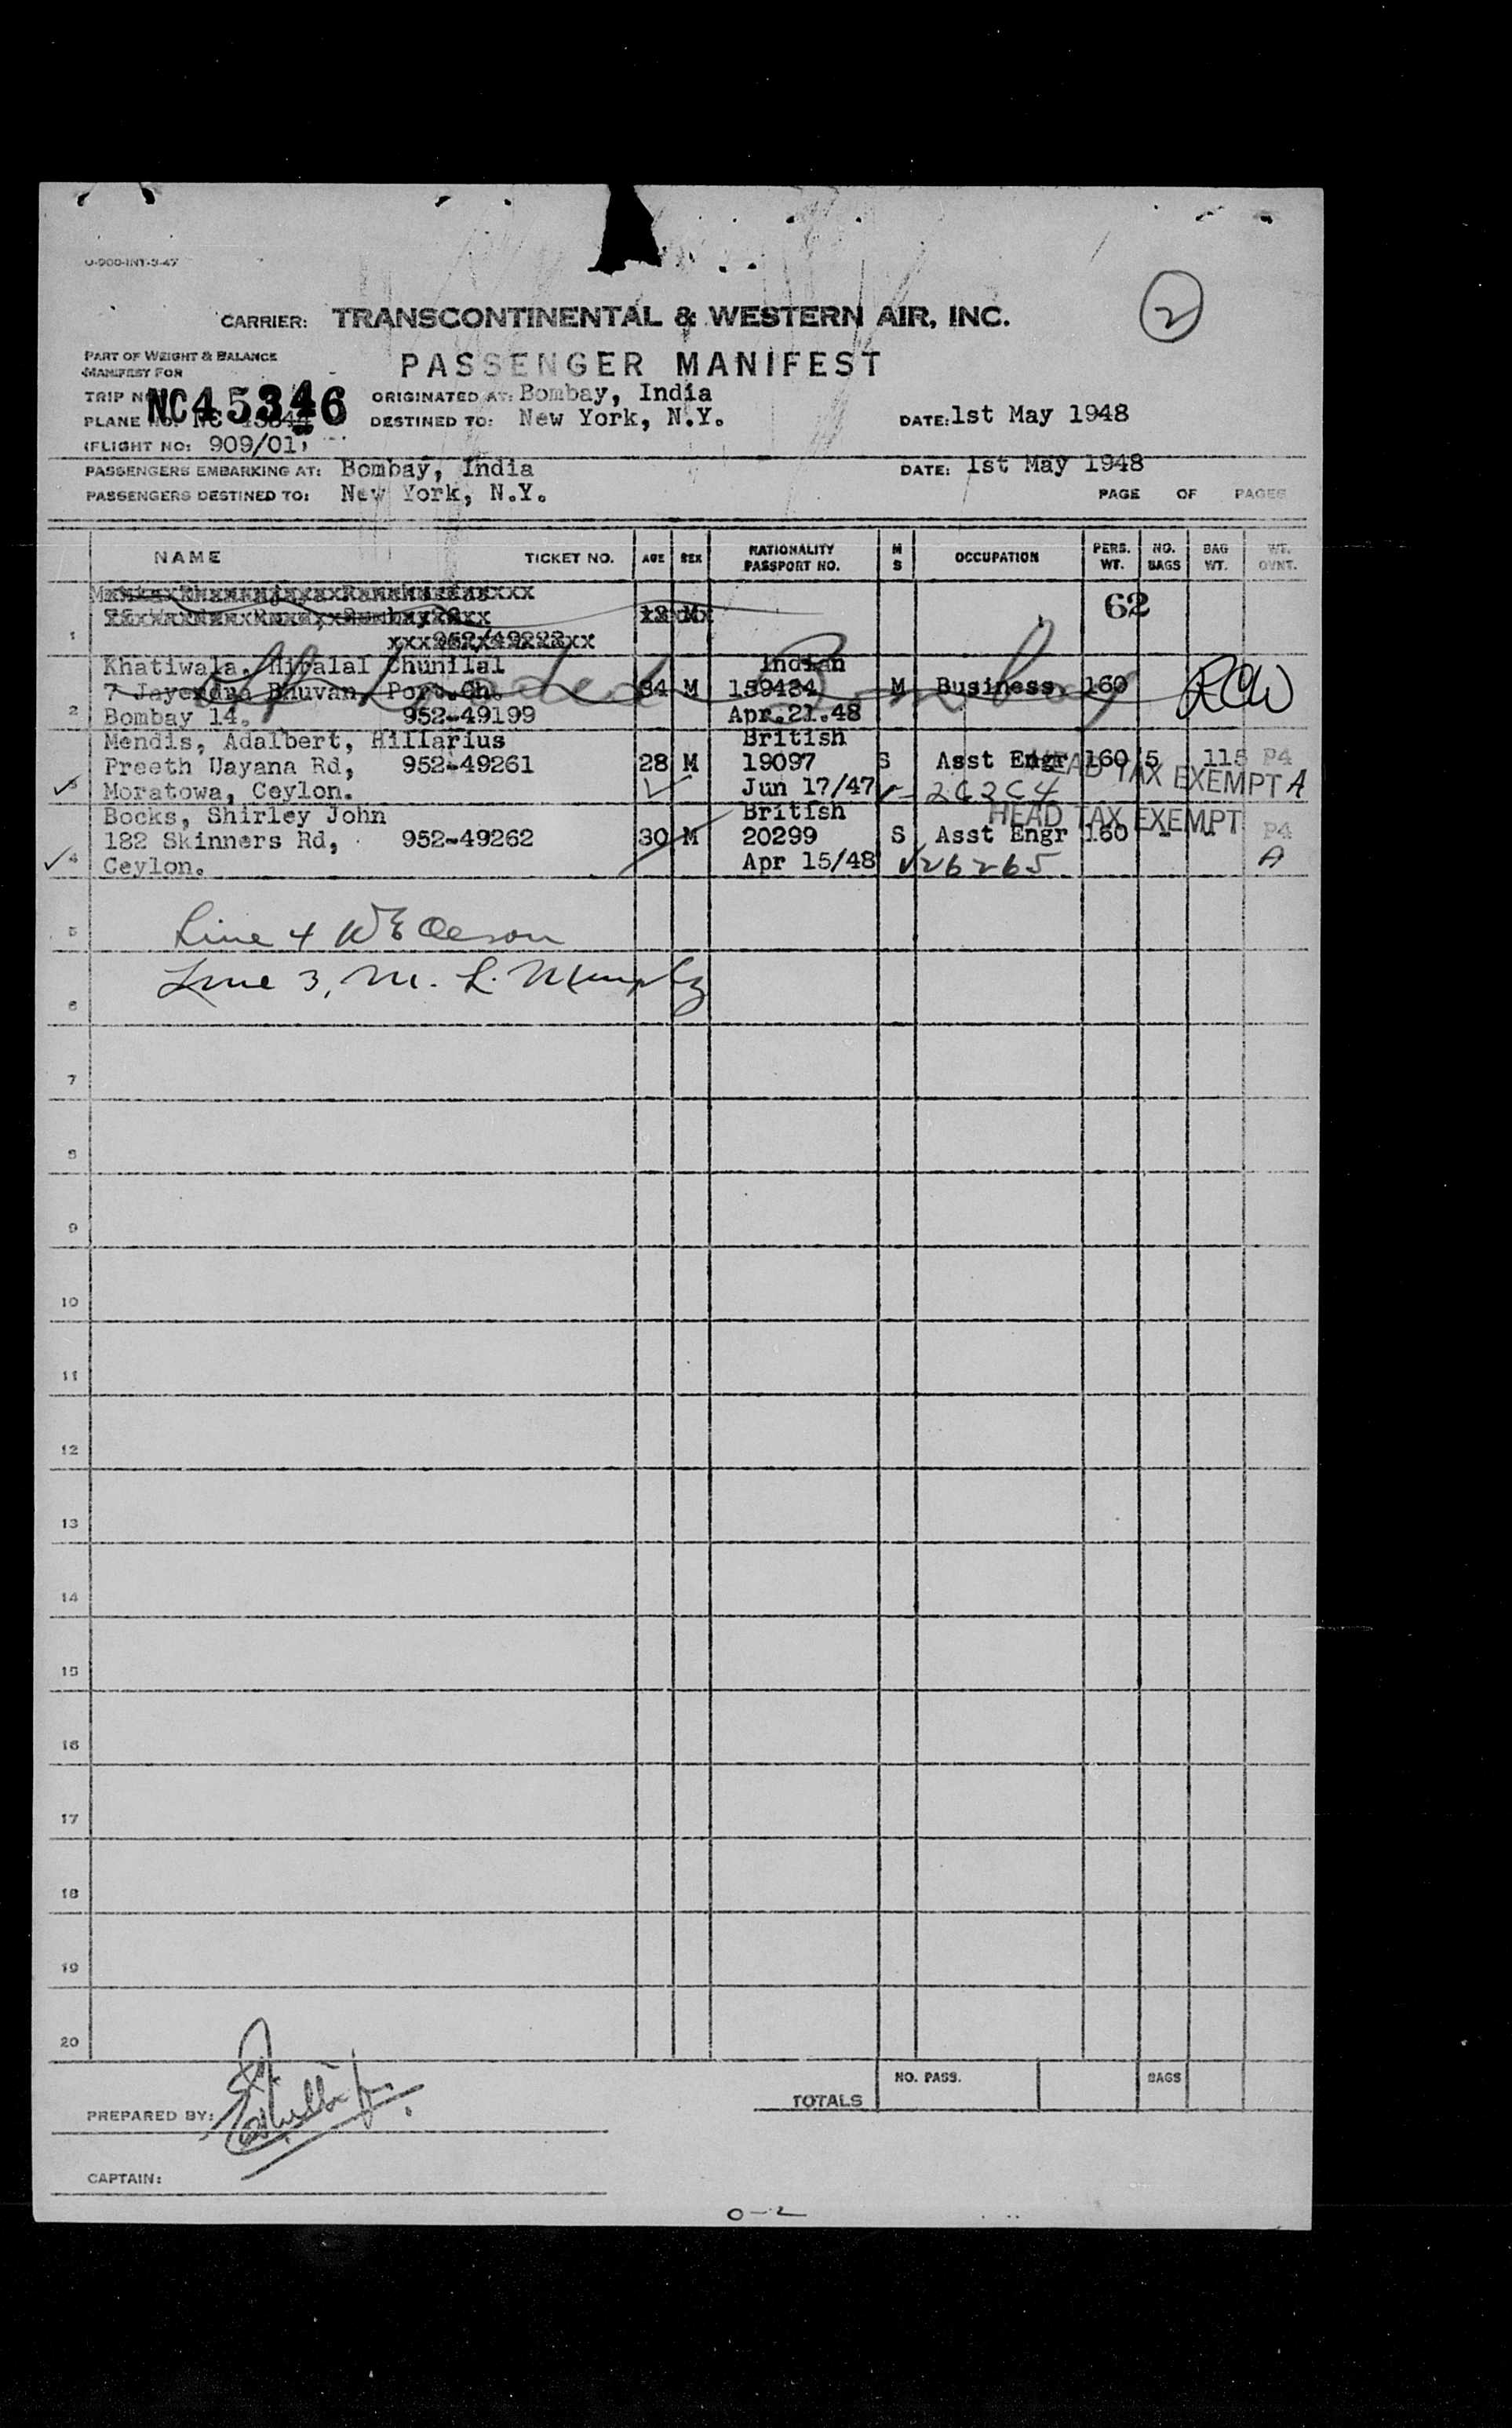 O-900-INT-9-47
2
CARRIER: TRANSCONTINENTAL & WESTERN AIR, INC.
PART OF WEIGHT & BALANCE
MANIFEST FOR
PASSENGER MANIFEST
TRIP NO. NC45346 ORIGINATED AT: Bombay, India
PLANE NO. NC DESTINED TO: New York, N.Y. DATE: 1st May 1948
(FLIGHT NO: 909/01)
PASSENGERS EMBARKING AT: Bombay, India DATE: 1st May 1948
PASSENGERS DESTINED TO: New York, N.Y. PAGE OF PAGES
NAME TICKET NO. AGE SEX NATIONALITY PASSPORT NO. M S OCCUPATION PERS. WT. NO. BAGS BAG WT. WT. OVNT.
62
1
Khatiwala, Hiralal Chunilal Indian
7 Jayendra Bhuvan, Port.Ch. 34 M 159484 M Business 160 RCW
2 Bombay 14. 952-49199 Apr.21.48
Off Loaded Bombay
Mendis, Adalbert, Hillarius British
Preeth Uayana Rd, 952-49261 28 M 19097 S Asst Engr 160 5 115 P4
3 Moratowa, Ceylon. Jun 17/47 HEAD TAX EXEMPT A
Bocks, Shirley John British HEAD TAX EXEMPT
182 Skinners Rd, 952-49262 30 M 20299 S Asst Engr 160 - - P4
4 Ceylon. Apr 15/48 V26265 A
5 Line 4 W E Oeson
6 Line 3, M. L. Murphy
7
8
9
10
11
12
13
14
15
16
17
18
19
20
TOTALS NO. PASS. BAGS
PREPARED BY:
CAPTAIN:
0-2